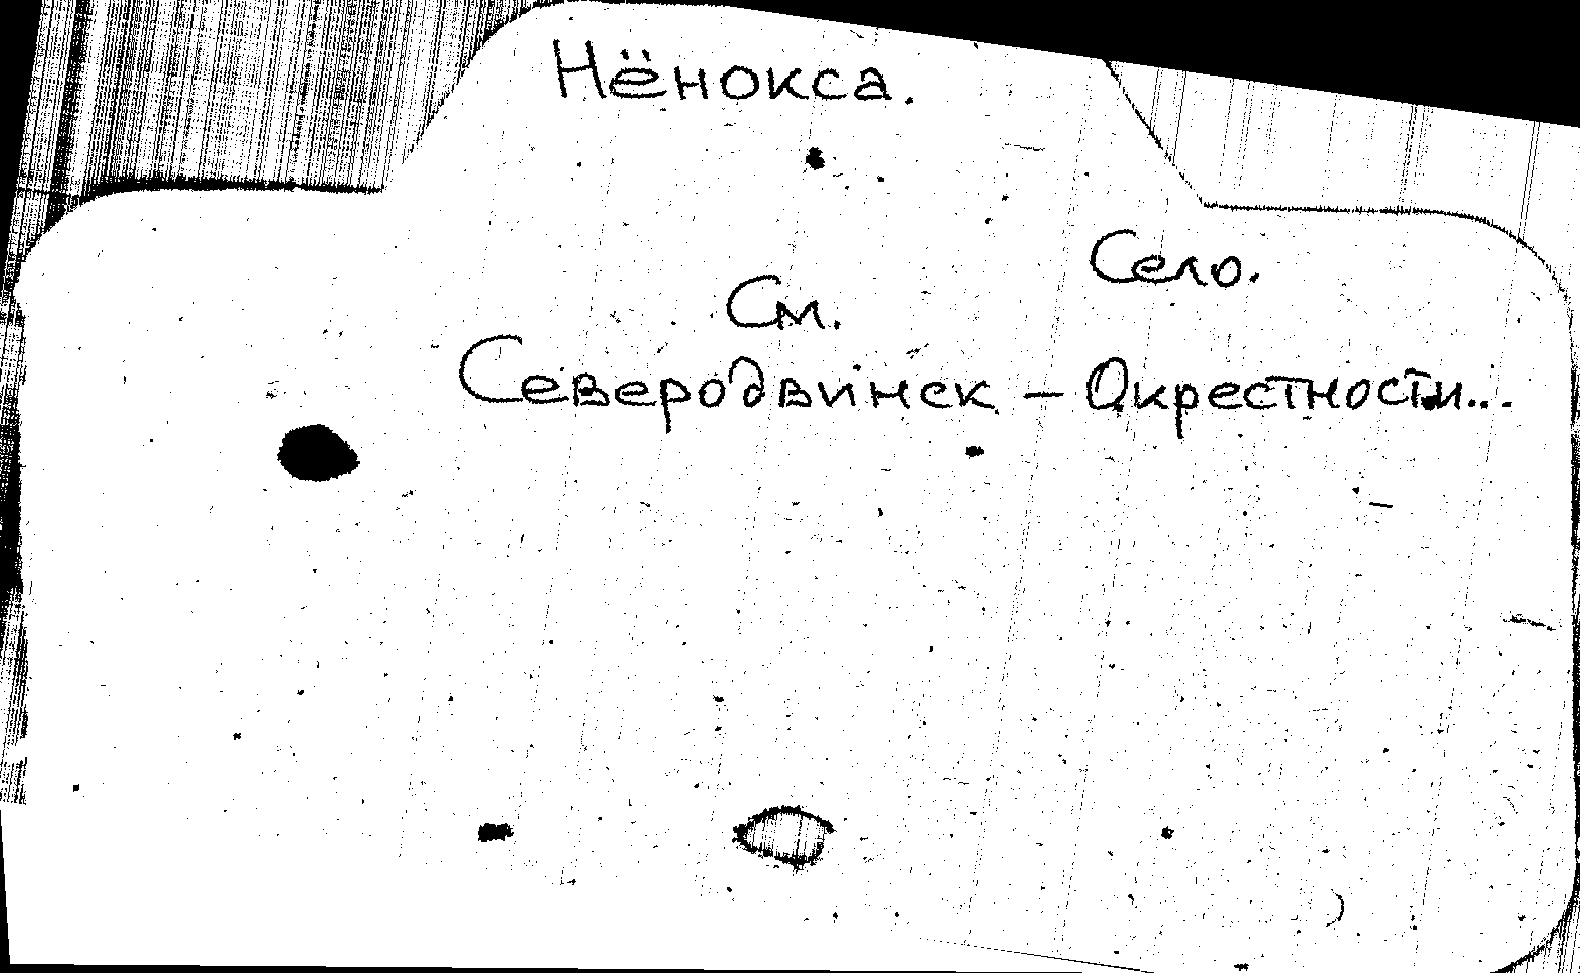 Нёнокса.
Село.
См.
Северодвинск – Окрестности...